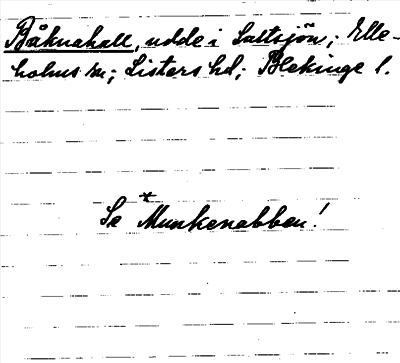 Båknahall, udde i Saltsjön; Elle-
holms sn; Listers hd; Blekinge l.
Se *Munkenabben!